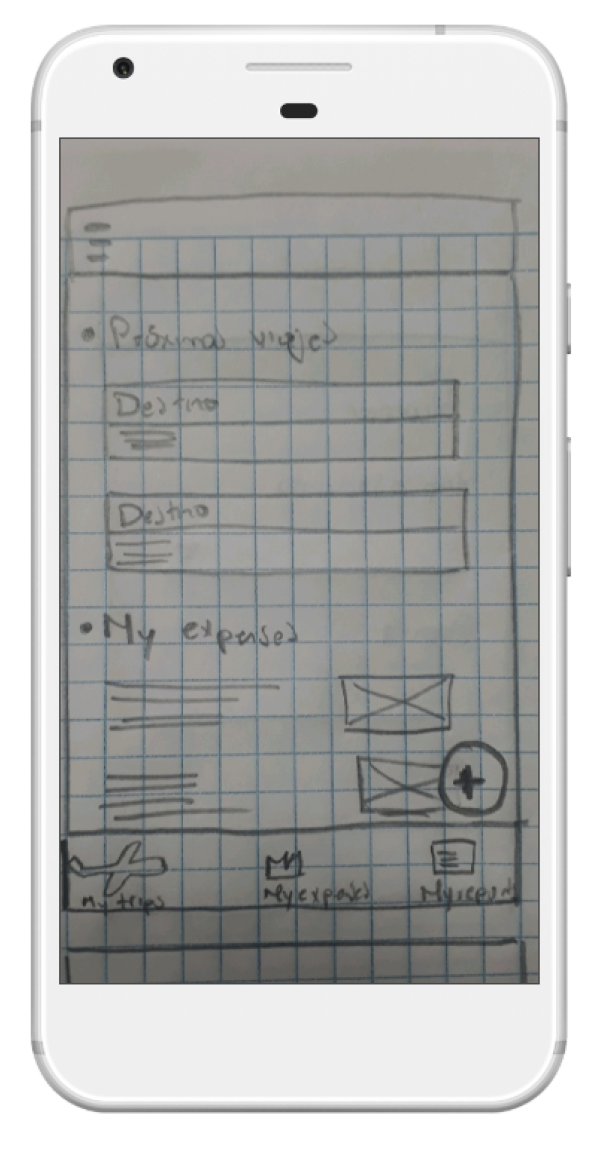 • Próximos viajes
Destino
Destino
• My expenses
+
My trips
My expenses
My reports